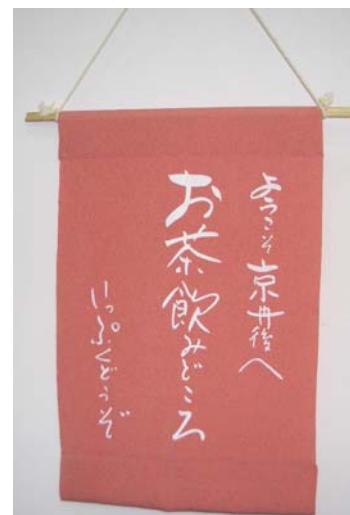 ようこそ京丹後へ
お茶飲みどころ
いっぷくどうぞ